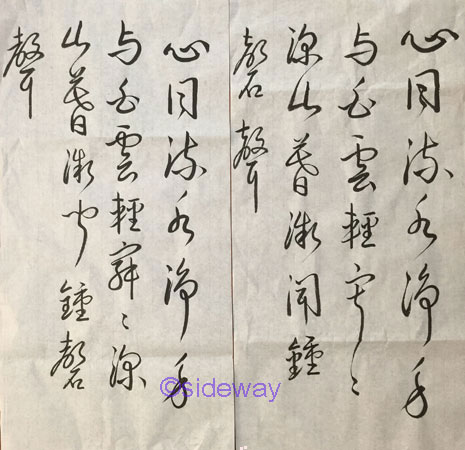 心同流水净身
与白雲輕寂々
深山暮微聞鐘
磬聲
心同流水净身
与白雲輕寂々深
山暮微聞鐘磬
聲
©sideway